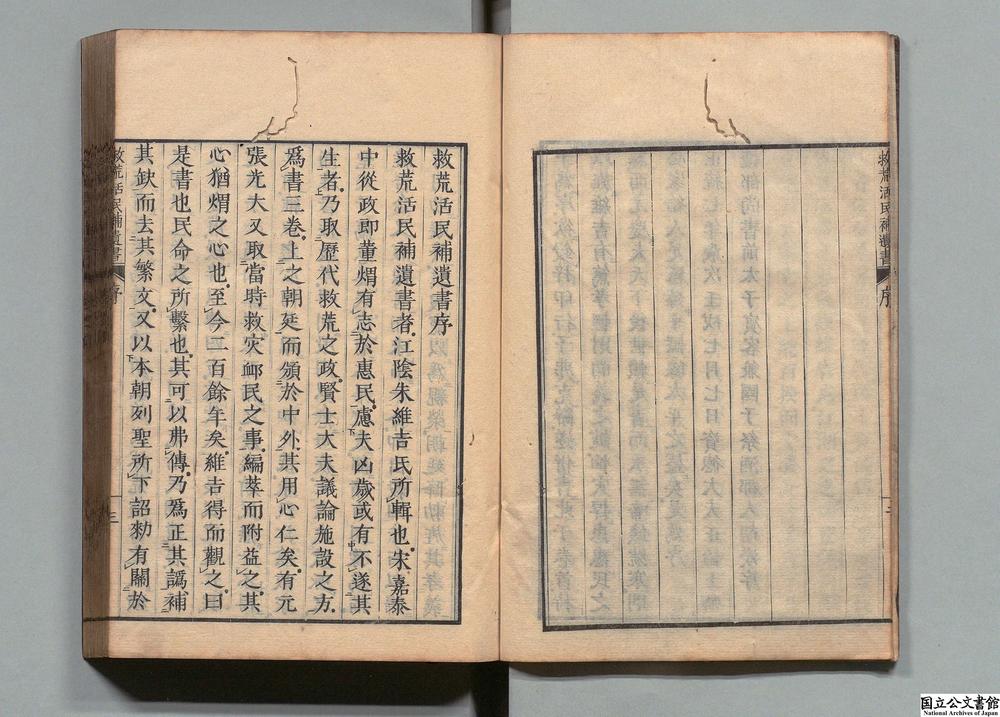 救荒活民補遺書
序
二
救荒活民補遺書序
救荒活民補遺書者江陰朱維吉氏所輯也宋嘉泰
中從政即董煟有志於惠民慮夫凶歲或有不遂其
生者乃取歷代救荒之政賢士大夫議論施設之方
爲書三卷上之朝廷而頒於中外其用心仁矣有元
張光大又取當時救灾邮民之事編萃而附益之其
心猶煟之心也至今二百餘年矣維吉得而觀之曰
是書也民命之所繫也其可以弗傳乃爲正其譌補
其缺而去其繁文又以本朝列聖所下詔勑有關於
救荒活民補遺書
序
三
国立公文書館
National Archives of Japan